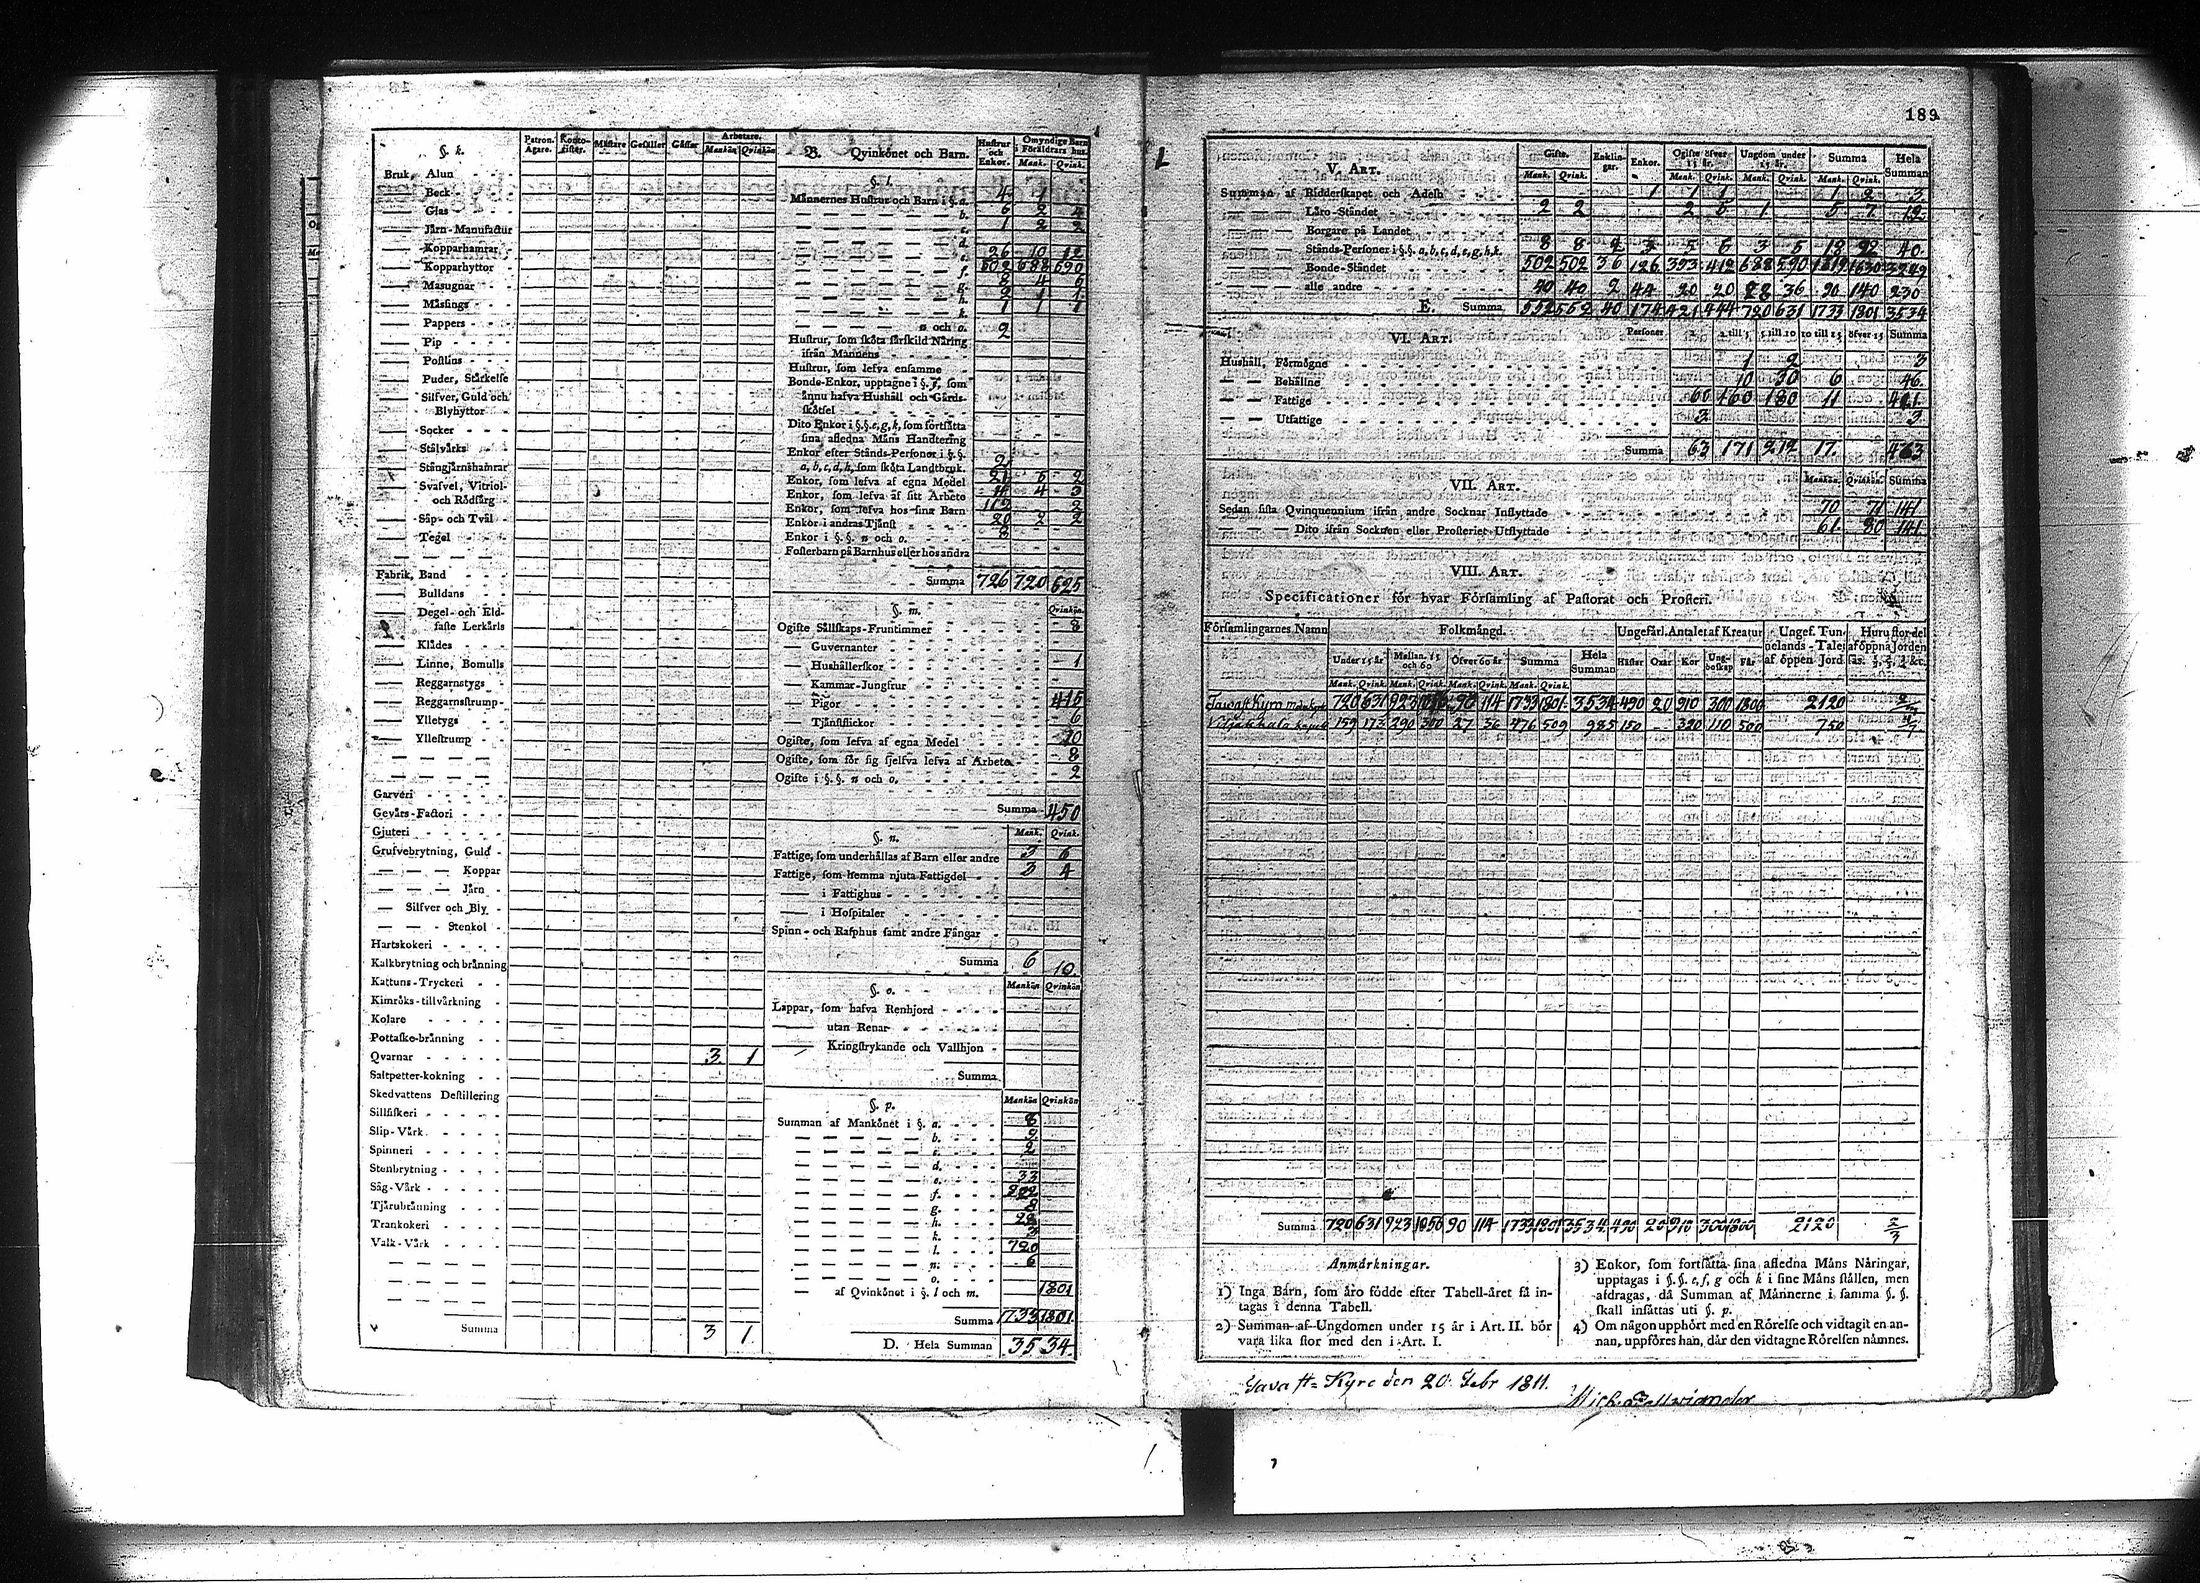 189
§. k.
Patron. Ägare.
Konto-rister.
Mästare
Gesäller
Gåsser
Arbetare.
Mankön Qvinkön
Bruk, Alun
Beck
Glas
Järn-Manufactur
Kopparhamrar
Kopparhyttor
Masugnar
Måssings
Pappers
Pip
Postlins
Puder, Stärkelse
Silfver, Guld och
Blyhyttor
Socker
Stålvärks
Stångjärnshamrar
Svafvel, Vitriol-
och Rödfärg
Såp- och Tvål
Tegel
Fabrik, Band
Bulldans
Degel- och Eld-
faste Lerkärls
Klädes
Linne, Bomulls
Reggarnstygs
Reggarnsstrump
Ylletygs
Yllestrump
Garveri
Gevärs-Factori
Gjuteri
Grufvebrytning, Guld
Koppar
Järn
Silfver och Bly
Stenkol
Hartskokeri
Kalkbrytning och bränning
Kattuns-Tryckeri
Kimröks-tillvärkning
Kolare
Pottaske-bränning
Qvarnar 3. 1
Saltpetter-kokning
Skedvattens Destillering
Sillfiskeri
Slip-Värk
Spinneri
Stenbrytning
Såg-Värk
Tjärubränning
Trankokeri
Valk-Värk
Summa 3 1.
B. Qvinkönet och Barn.
Hustrur och Enkor.
Omyndige Barn i Föräldrars hus.
Mank. Qvink.
§. l.
Männernes Hustrur och Barn i §. a. 4 1
b. 6 2 4
c. 1 2 2
d.
e. 26 10 12
f. 502 688 590
g. 8 4 6
h.
k. 1 1 1
n och o. 2
Hustrur, som sköta särskild Näring
ifrån Männens
Hustrur, som lefva ensamme
Bonde-Enkor, upptagne i §. f, som
ännu hafva Hushåll och Gårds-
skötsel
Dito Enkor i §.§. e, g, k, som fortsätta
sina afledna Mäns Handtering
Enkor efter Stånds-Personer i §.§.
a, b, c, d, h, som sköta Landtbruk. 2
Enkor, som lefva af egna Medel 21 5 2
Enkor, som lefva af sitt Arbete 14 4 3
Enkor, som lefva hos sina Barn 112 2
Enkor i andras Tjänst 20 2 2
Enkor i §. §. n och o. 8
Fosterbarn på Barnhus eller hos andra
Summa 726 720 625
§. m. Qvinkön
Ogifte Sällskaps-Fruntimmer 8
Guvernanter
Hushållerskor 1
Kammar-Jungfrur
Pigor 415
Tjänstflickor 6
Ogifte, som lefva af egna Medel 10
Ogifte, som för sig sjelfva lefva af Arbete 8
Ogifte i §. §. n och o. 2
Summa 450
§. n. Mank. Qvink.
Fattige, som underhållas af Barn eller andre 3 6
Fattige, som hemma njuta Fattigdel 3 4
i Fattighus
i Hospitaler
Spinn- och Rasphus samt andre Fångar
Summa 6 10.
§. o. Mankön Qvinkön
Lappar, som hafva Renhjord
utan Renar
Kringstrykande och Vallhjon
Summa
§. p. Mankön Qvinkön
Summan af Mankönet i §. a. 8
b. 9
c. 2
d.
e. 33
f.
g. 8
h.
k. 3
l. 720
n. 6
o.
af Qvinkönet i §. l och m. 1801
Summa 1733 1801.
D. Hela Summan 3534.
V. ART.
Gifte. Enklin-gar. Enkor. Ogifte öfver 15 år. Ungdom under 15 år. Summa Hela Summan
Mank. Qvink. Mank. Qvink. Mank. Qvink. Mank. Qvink.
Summan af Ridderskapet och Adeln 1 1 1 1 2 3.
Läro-Ståndet 2 2 2 5 1 5 7 12
Borgare på Landet
Stånds-Personer i §.§. a, b, c, d, e, g, h, k. 8 8 2 3 5 6 3 5 40.
Bonde-Ståndet 502 502 36 126 393 412 688 590 1619 1630 3249
alle andre 40 2 44 20 20 28 36 90 140 230
E. Summa 552 552 40 174 421 444 720 631 1733 1801 3534
VI. ART.
Personer 2 till 5 5 till 10 10 till 15 öfver 15 Summa
Hushåll, Förmögne 1 2 3
Behållne 10 30 6 46.
Fattige 60 160 180 11 411.
Utfattige 3 3.
Summa 63 171 212 17. 463
VII. ART. Mankön. Qvinkön. Summa
Sedan sista Qvinquennium ifrån andre Socknar Inflyttade 70 71 141.
Dito ifrån Socknen eller Prosteriet Utflyttade 61. 80 141.
VIII. ART.
Specificationer för hvar Församling af Pastorat och Prosteri.
Församlingarnes Namn Folkmängd. Ungefärl. Antalet af Kreatur Ungef. Tun-nelands-Talet af öppen Jord. Huru stor del af öppna Jorden
Under 15 år Mellan 15 och 60 Öfver 60 år Summa Hela Summan Hästar Oxar Kor Ung-boskap Får
Mank. Qvink. Mank. Qvink. Mank. Qvink. Mank. Qvink.
Tavast Kyro 720 631 923 1056 90 114 1733 1801 3534 490 20 910 300 1800 2120 2/3
Viljakkala 159 173 290 300 27 36 476 509 985 150 — 320 110 500 750
Summa 720 631 923 1056 90 114 1733 1801 3534 490 20 910 300 1800 2120 2/3
Anmärkningar.
1) Inga Barn, som äro födde efter Tabell-året få in-
tagas i denna Tabell.
2) Summan af Ungdomen under 15 år i Art. II. bör
vara lika stor med den i Art. I.
3) Enkor, som fortsätta sina afledna Mäns Näringar,
upptagas i §. §. e, f, g och k i sine Mäns ställen, men
afdragas, då Summan af Männerne i samma §. §.
skall insättas uti §. p.
4) Om någon upphört med en Rörelse och vidtagit en an-
nan, uppföres han, där den vidtagne Rörelsen nämnes.
Tavast-Kyro den 20. Febr 1811.